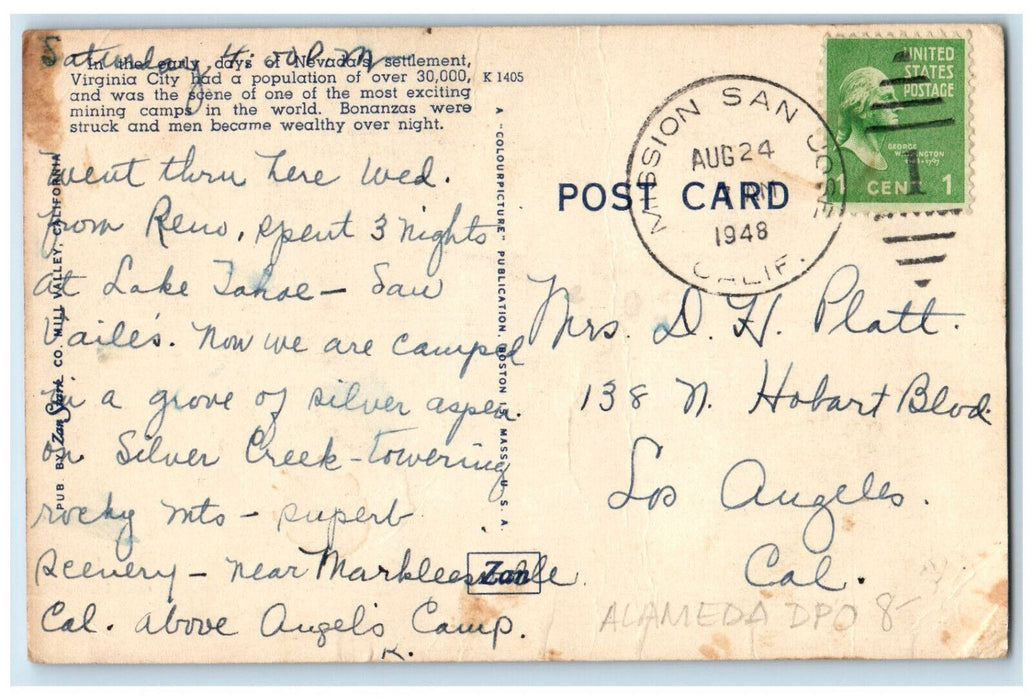 Saturday 4:00 P.M
In the early days of Nevada's settlement,
Virginia City had a population of over 30,000,
and was the scene of one of the most exciting
mining camps in the world. Bonanzas were
struck and men became wealthy over night.
K 1405
went thru here Wed.
from Reno, spent 3 nights
at Lake Tahoe – Saw
Vaile's. Now we are camped
in a grove of silver aspen
on Silver Creek – towering
rocky mts – superb
scenery – near Markleesville
Cal. above Angel's Camp.
K.
PUB BY Zan Stark CO. MILL VALLEY, CALIFORNIA
A "COLOURPICTURE" PUBLICATION, BOSTON 15, MASS., U. S. A.
Zan
POST CARD
MISSION SAN JOSE
AUG 24
1948
CALIF.
UNITED
STATES
POSTAGE
GEORGE
WASHINGTON
1 CENT 1
1
Mrs. D. H. Platt.
138 N. Hobart Blvd.
Los Angeles.
Cal.
ALAMEDA DPO 8-